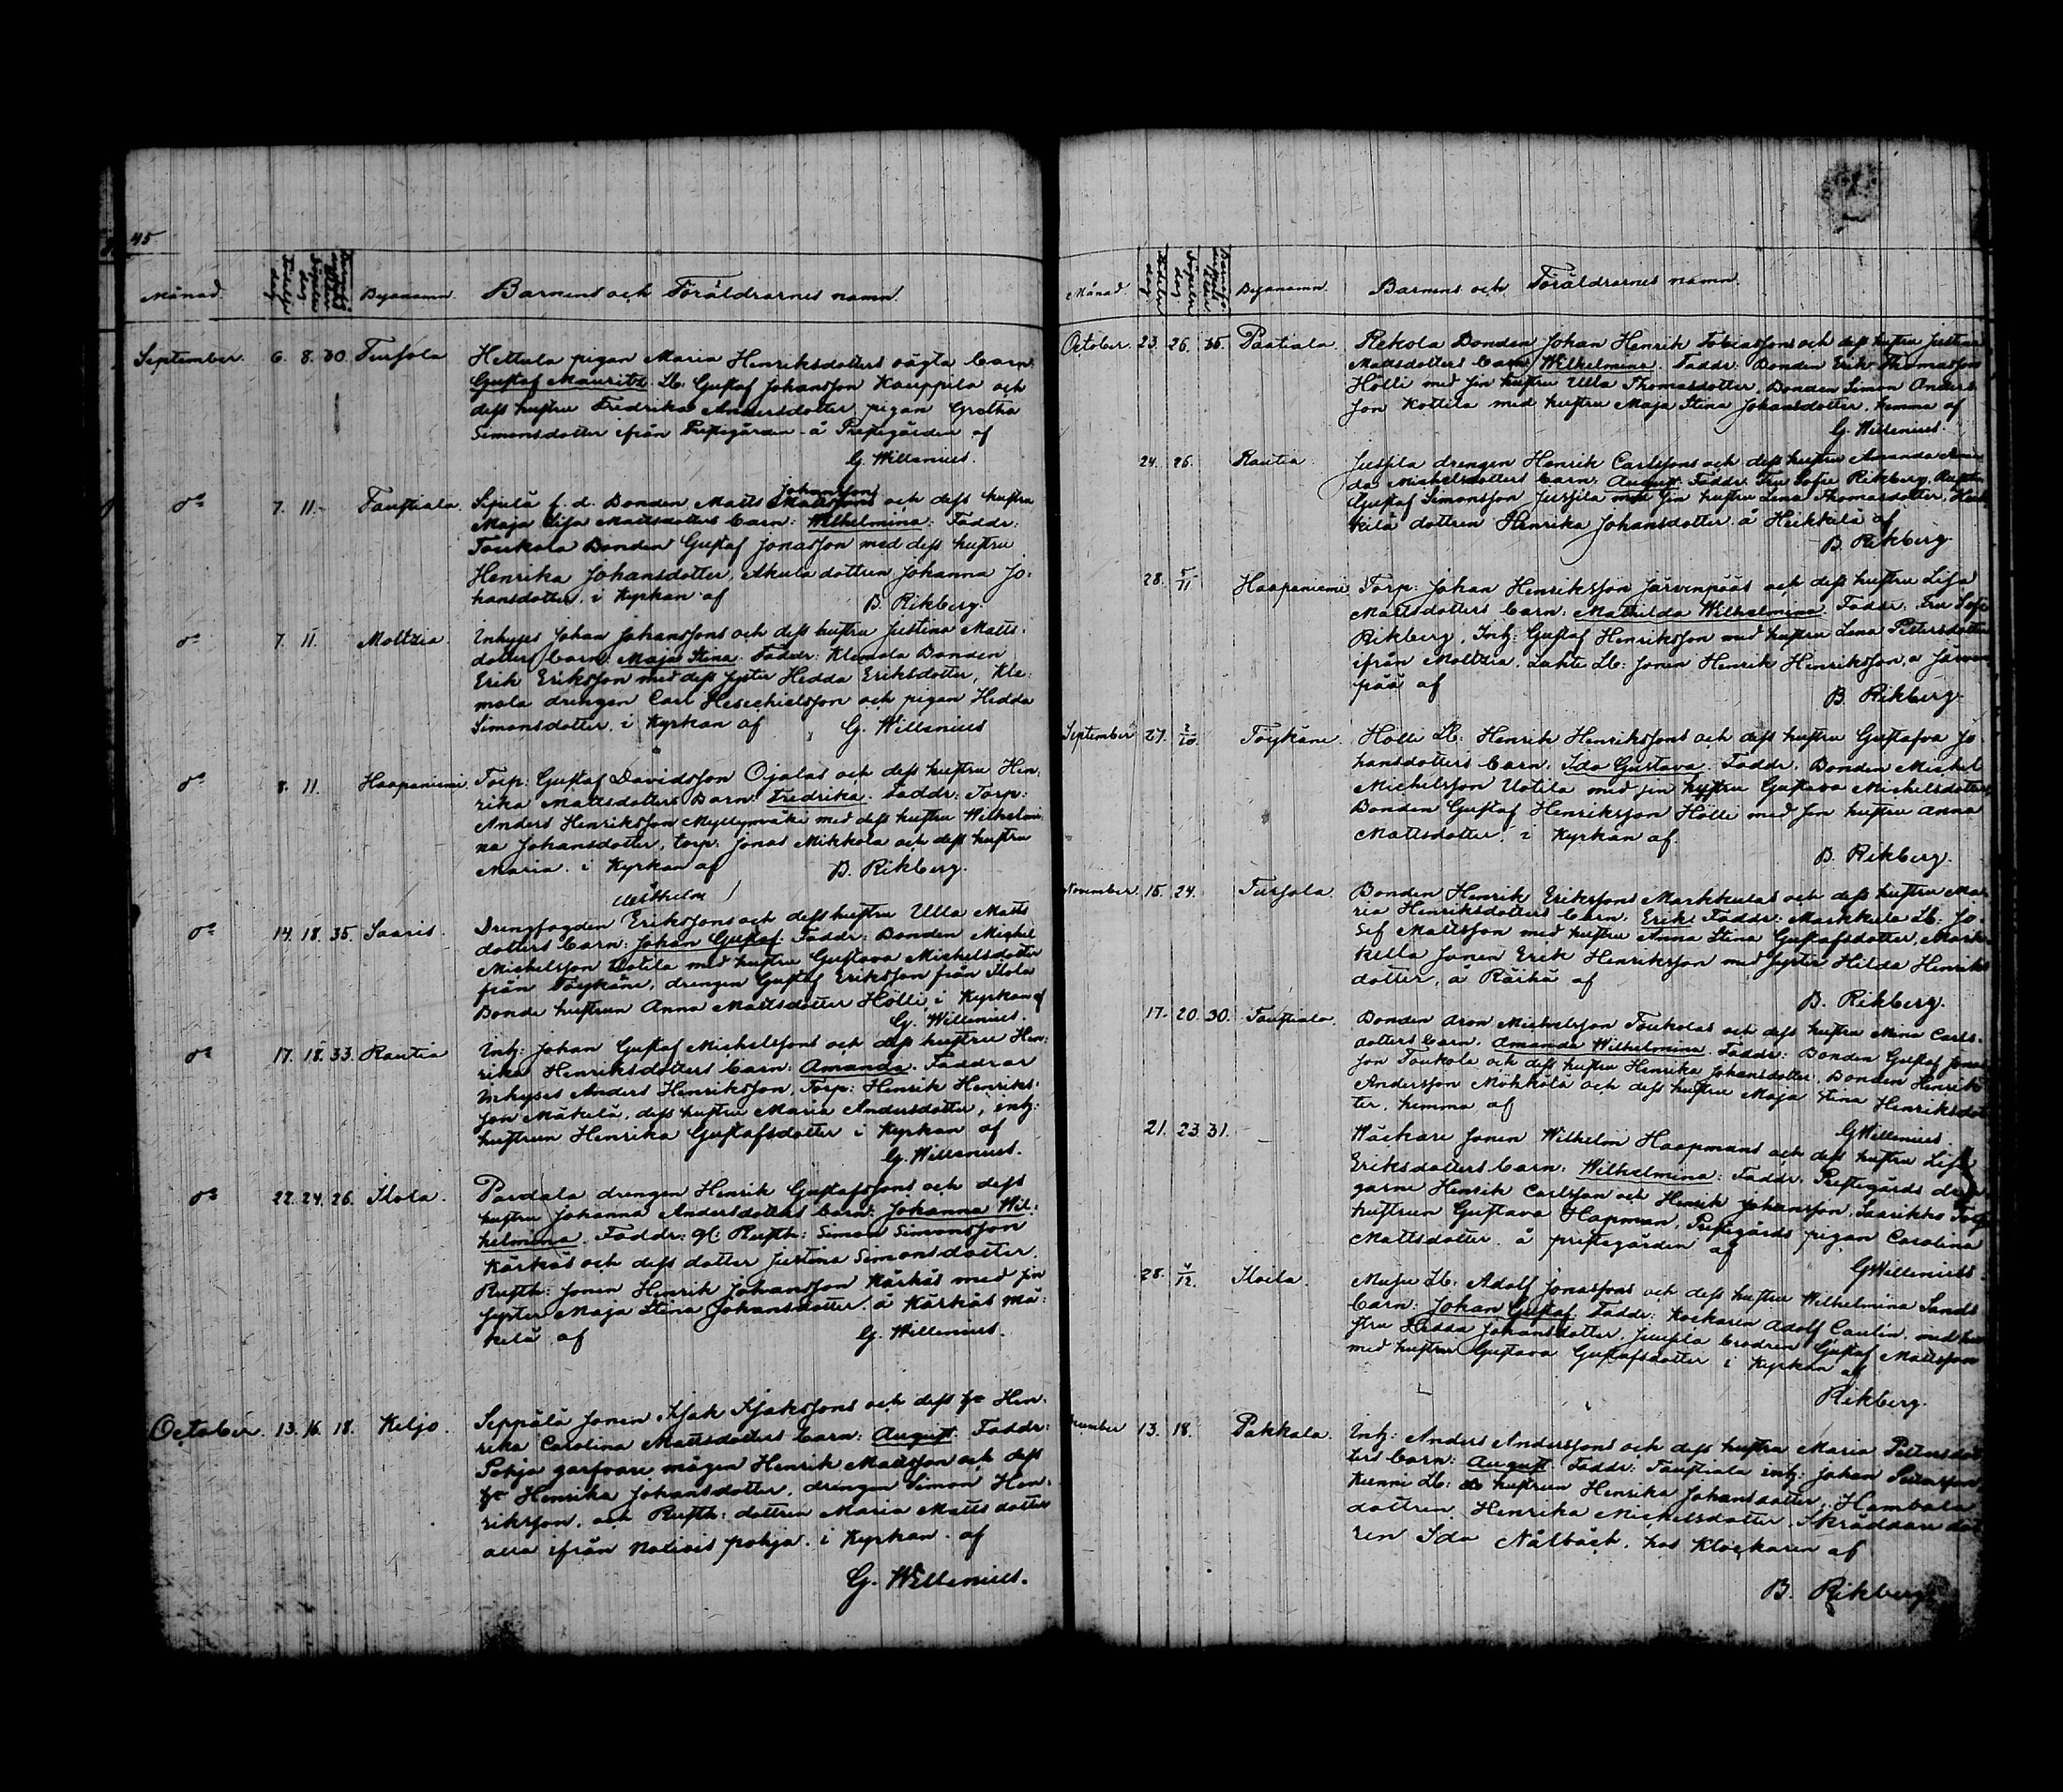 45
Månad. Födelse dag Döpelse dag Byanamn. Barnens och Föräldrarnes namn.
September. 6. 8. 30. Tursola Hettula pigan Maria Henriksdotters oägta barn
Gustaf Mauritz. Lb: Gustaf Johansson Kauppila och
dess hustru Fredrika Andersdotter, pigan Gretha
Simonsdotter ifrån Prestegården å Prestegården af
G. Willenius.
do 7. 11. Taustiala. Sipilä f. d. Bonden Matts Johanssons och dess hustru
Maja Lisa Mattsdotters barn: Wilhelmina. Faddr:
Toukola Bonden Gustaf Jonasson med dess hustru
Henrika Johansdotter, Akula dottren Johanna Jo-
hansdotter. i Kyrkan af B. Rikberg.
do 7. 11. Moltzia. Inhyses Johan Johanssons och dess hustru Justina Matts-
dotters barn: Maja Stina. Faddr: Klemola Bonden
Erik Eriksson med dess syster Hedda Eriksdotter, Kle-
mola drengen Carl Hesechielsson och pigan Hedda
Simonsdotter. i Kyrkan af G. Willenius
do 8. 11. Haapaniemi. Torp: Gustaf Davidsson Ojalas och dess hustru Hen-
rika Mattsdotters Barn: Fredrika. Faddr: Torp:
Anders Henriksson Myllymäki med dess hustru Wilhelmi-
na Johansdotter, torp: Jonas Mikkola och dess hustru
Maria. i Kyrkan af B. Rikberg.
do 14. 18. 35. Saaris. Drengfogden Erikssons och dess hustru Ulla Matts
dotters barn: Johan Gustaf. Faddr: Bonden Michel
Michelsson Uotila med hustru Gustava Michelsdotter
från Töykäne, drengen Gustaf Eriksson från Ilola
Bonde hustrun Anna Mattsdotter Hölli, i Kyrkan af
G. Willenius.
do 17. 18. 33. Rautia Inh: Johan Gustaf Michelssons och dess hustru Hen-
rika Henriksdotters barn: Amanda. Faddrar
Inhyses Anders Henriksson, Torp: Henrik Henriks-
son Mäkelä, dess hustru Maria Andersdotter, inh:
hustrun Henrika Gustafsdotter i Kyrkan af
G. Willenius.
do 22. 24. 26. Ilola. Pardala drengen Henrik Gustafssons och dess
hustru Johanna Andersdotters barn: Johanna Wil-
helmina. Faddr: Rusth: Simon Simonsson
Kärkäs och dess dotter Justina Simonsdotter.
Rusth: sonen Henrik Johansson Kärkäs med sin
syster Maja Stina Johansdotter. å Kärkäs Mä-
kelä af G. Willenius.
October. 13. 16. 18. Keljo. Seppälä sonen Isak Isakssons och dess Hen-
rika Carolina Mattsdotters barn: August. Faddr:
Pohja garfvare mågen Henrik Mattsson och dess
Henrika Johansdotter, drengen Simon Hen-
riksson, och Rusth: dottren Maria Matts dotter
alla ifrån pohja. i Kyrkan af
G. Willenius.
Månad. Födelse dag Döpelse dag Byanamn. Barnens och Föräldrarnes namn.
October. 23. 26. 35. Pastiala. Rekola Bonden Johan Henrik Tobiassons och dess hustru Justina
Mattsdotters barn: Wilhelmina. Faddr: Bonden Erik Thomasson
Hölli med sin hustru Ulla Thomasdotter, Bonden Simon Anders-
son Kottila med hustru Maja Stina Johansdotter. hemma af
G. Willenius.
24. 26. Rautia. Jussila drengen Henrik Carlssons och dess hustru Amanda
Michelsdotters barn: August. Faddr: Fru Sofie Rikberg,
Gustaf Simonsson Jussila med sin hustru Lena Thomasdotter, Heik-
kilä dottren Henrika Johansdotter. å Heikkilä af
B. Rikberg.
28. 5/11 Haapaniemi Torp: Johan Henriksson Järvenpääs och dess hustru Lisa
Mattsdotters barn: Mathilda Wilhelmina. Faddr: Fru Sofie
Rikberg, Inh: Gustaf Henriksson med hustru Lena Petersdotter
ifrån Moltzia. Lb: sonen Henrik Henriksson, å Järven-
pää af B. Rikberg.
September 27. 2/10. Töykäne. Hölli Lb: Henrik Henrikssons och dess hustru Gustafva Jo-
hansdotters barn. Ida Gustava. Faddr: Bonden Michel
Michelsson Uotila med sin hustru Gustava Michelsdotter,
Bonden Gustaf Henriksson Hölli med sin hustru Anna
Mattsdotter. i Kyrkan af.
B. Rikberg.
November. 15. 24. Tursola. Bonden Henrik Erikssons Markkulas och dess hustru Ma-
ria Henriksdotters barn. Erik. Faddr: Markkula Lb: Jo-
sef Mattsson med hustru Anna Stina Gustafsdotter, Mark-
kula sonen Erik Henriksson med syster Hilda Henriks
dotter, å Räikä af
B. Rikberg.
17. 20. 30. Taustiala. Bonden Aron Michelsson Toukolas och dess hustru Mina Carls-
dotters barn. Amanda Wilhelmina. Faddr: Bonden Gustaf Jonas-
son Toukola och dess hustru Henrika Johansdotter. Bonden Henrik
Andersson Mökkölä och dess hustru Maja Stina Henriksdot
ter. hemma af
G Willenius.
21. 23. 31. – Wäckare sonen Wilhelm Haapmans och dess hustru Lisa
Eriksdotters barn. Wilhelmina. Faddr: Prestegårds dren-
garne Henrik Carlsson och Henrik Johansson, Saarikko Torp
hustrun Gustava Hapman, Prestegårds pigan Carolina
Mattsdotter. å prestegården af
G Willenius.
28. 4/12. Iloila. Lb: Adolf Jonassons och dess hustru Wilhelmina Sands
barn: Johan Gustaf. Faddr: Kockaren Adolf Caulin, med hu-
stru Hedda Johansdotter, Juusila brodren Gustaf Mattsson
med hustru Gustava Gustafsdotter i Kyrkan af
Rikberg.
13. 18. Pakkala. Inh: Anders Anderssons och dess hustru Maria Petersdot
ters barn: August. Faddr: Taustiala inh: Johan Petersson,
Kunni Lb: hustrun Henrika Johansdotter, Hambala
dottren Henrika Michelsdotter, Skräddare dot
ren Ida Nålbäck. hos Klockaren af
B. Rikberg.